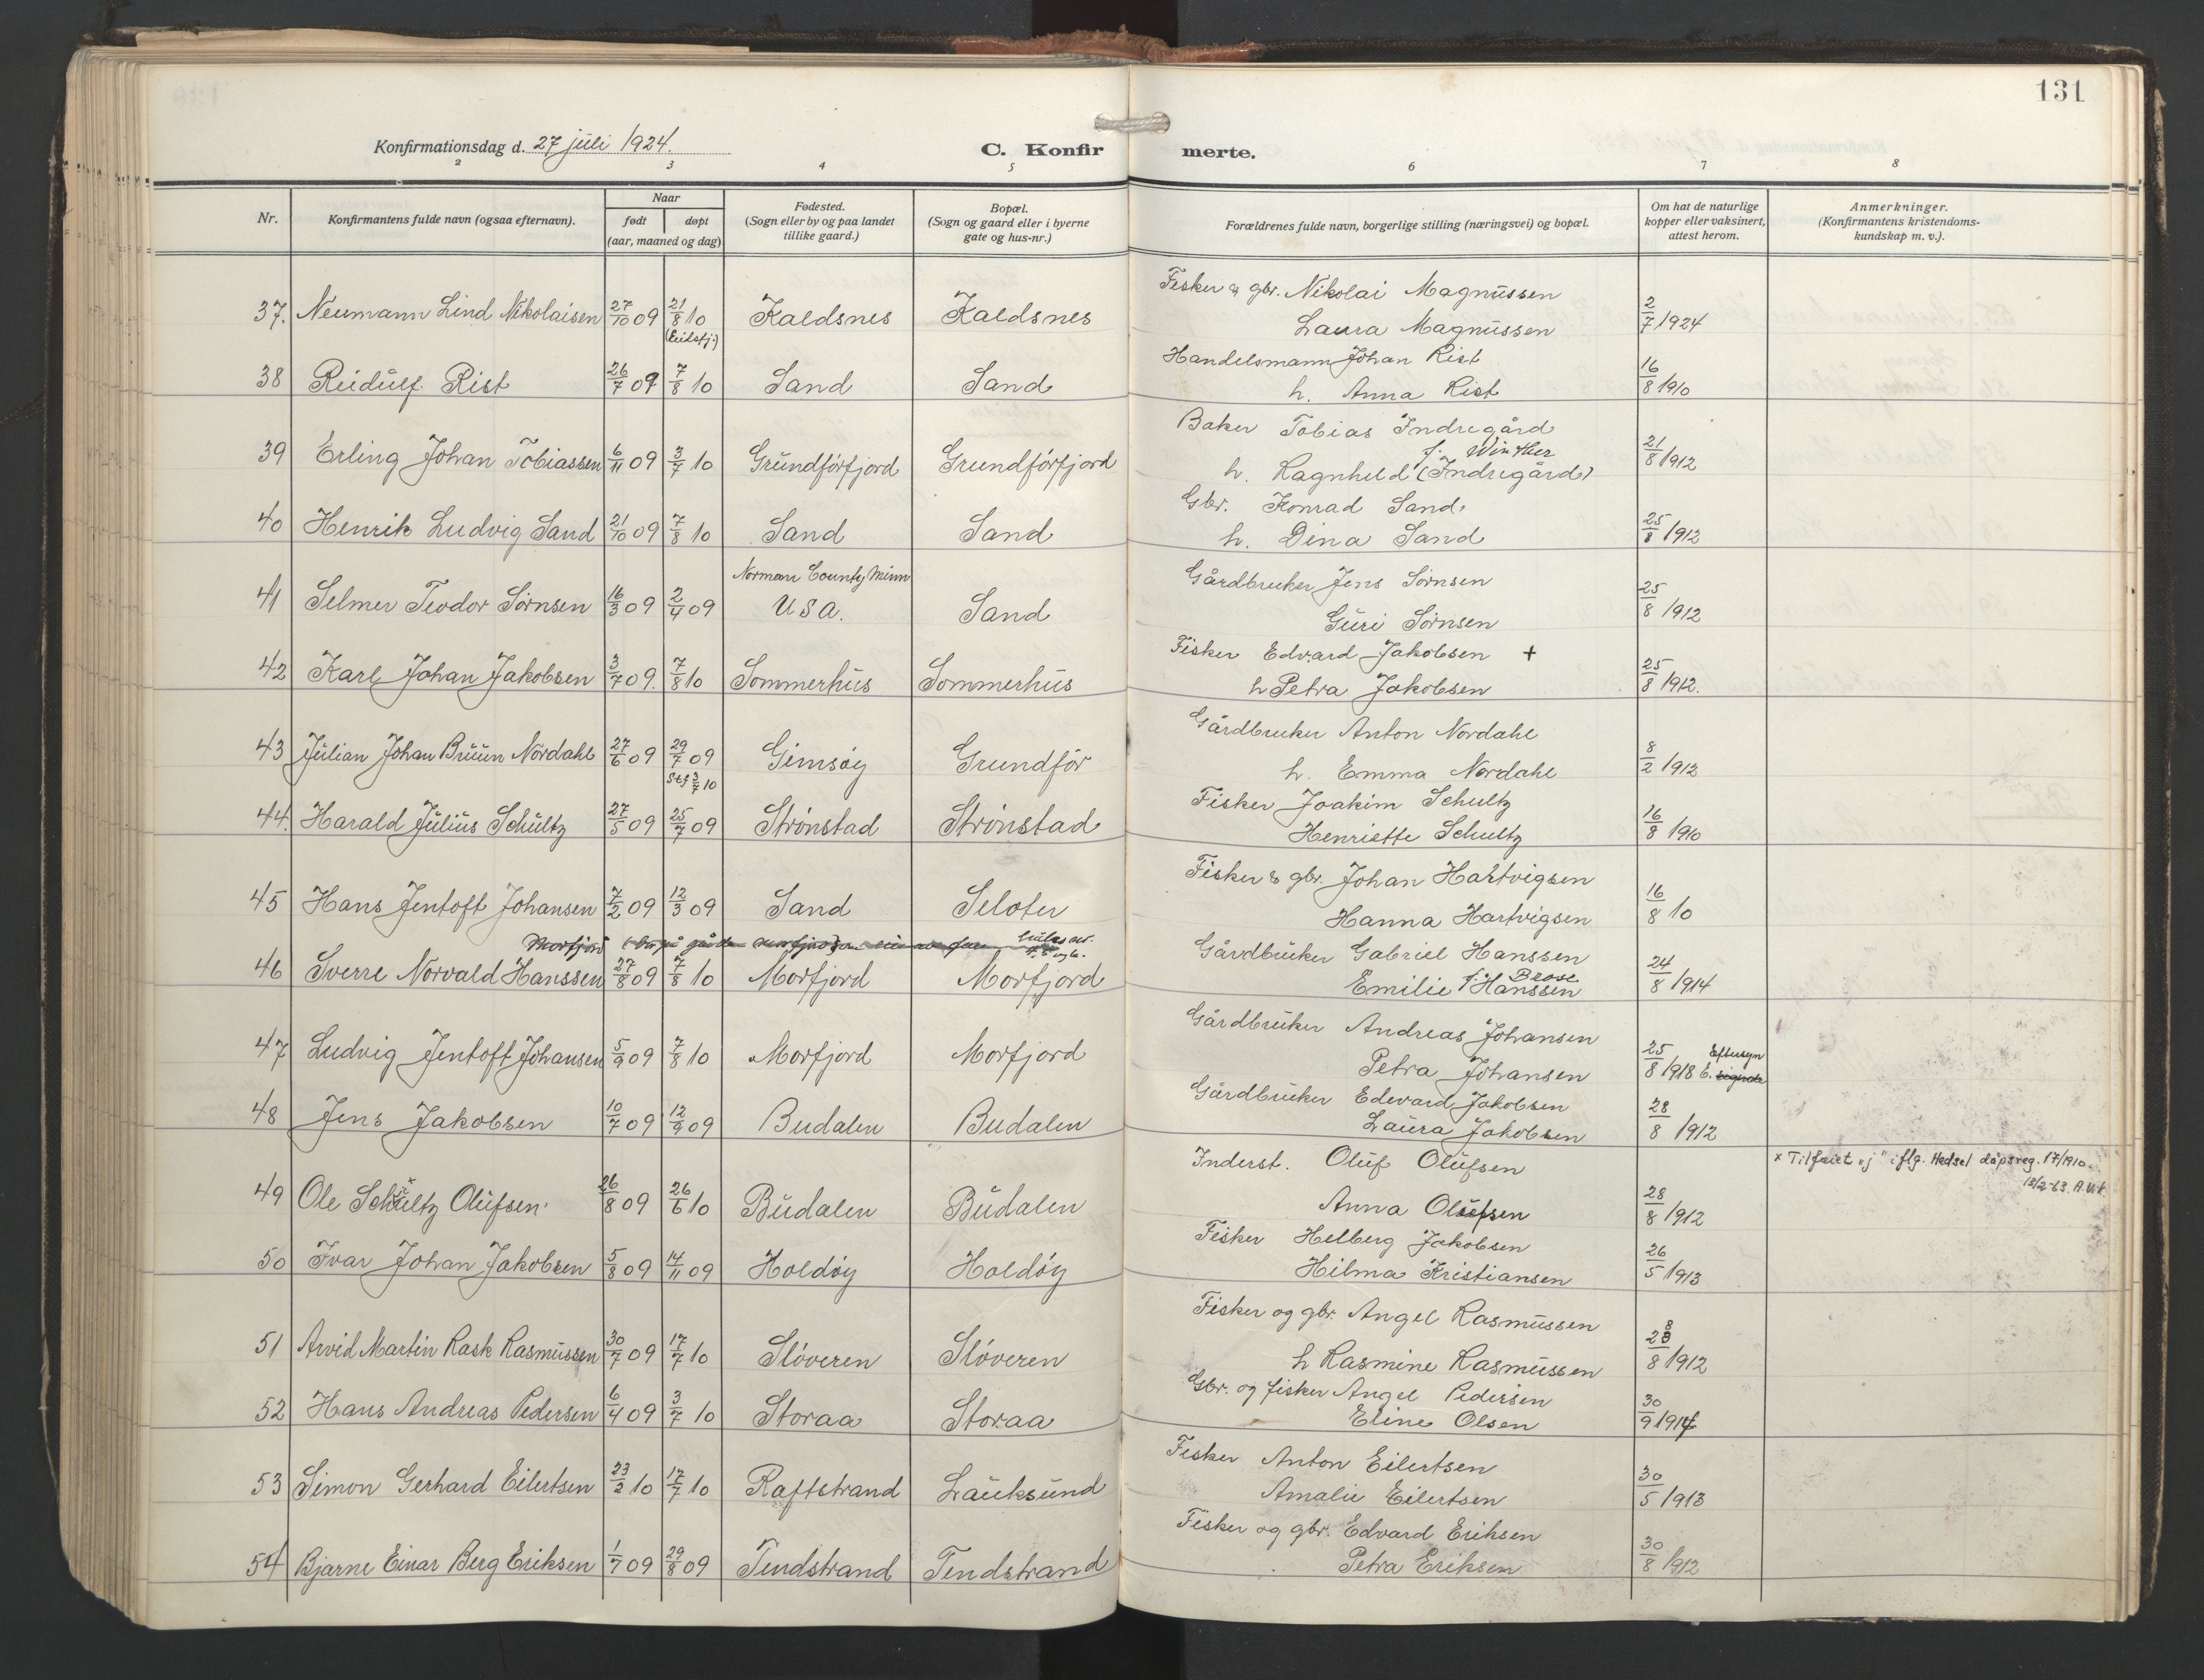 131
Konfirmationsdag d. 27 juli 1924.
C. Konfirmerte.
2 3 4 5 6 7 8
Nr.
Konfirmantens fulde navn (ogsaa efternavn).
Naar
født døpt
(aar, maaned og dag)
Fødested.
(Sogn eller by og paa landet
tillike gaard.)
Bopæl.
(Sogn og gaard eller i byerne
gate og hus-nr.)
Forældrenes fulde navn, borgerlige stilling (næringsvei) og bopæl.
Om hat de naturlige
kopper eller vaksinert,
attest herom.
Anmerkninger.
(Konfirmantens kristendoms-
kundskap m. v.).
37. Neumann Lind Nikolaisen 27/10 09 21/8 10 Kaldsnes Kaldsnes
(Eidsfj.)
Fisker & gbr. Nikolai Magnussen
Laura Magnussen 2/7 1924
38 Reidulf Rist 26/7 09 7/8 10 Sand Sand
Handelsmann Johan Rist
h. Anna Rist 16/8 1910
39 Erling Johan Tobiassen 6/11 09 3/7 10 Grundførfjord Grundførfjord
Baker Tobias Indregård
f. Winther
h. Ragnhild (Indregård) 21/8 1912
40 Henrik Ludvig Sand 21/10 09 7/8 10 Sand Sand
Gbr. Konrad Sand
h. Dina Sand 25/8 1912
Norman County Minn
41 Selmer Teodor Sørnsen 16/3 09 2/4 09 USA. Sand
Gårdbruker Jens Sørnsen
Guri Sørnsen 25/8 1912
42 Karl Johan Jakobsen 3/7 09. 7/8 10 Sommerhus Sommerhus
Fisker Edvard Jakobsen +
h Petra Jakobsen 25/8 1912.
43 Julian Johan Bruun Nordahl 27/6 09 29/7 09 Gimsøy Grundfør
Stf 3/7 10
Gårdbruker Anton Nordahl
h. Emma Nordahl 8/2 1912
44. Harald Julius Schultz 27/5 09 25/7 09 Strønstad Strønstad
Fisker Joakim Schultz
Henriette Schultz 16/8 1910
45 Hans Jentoft Johansen 7/2 09 12/3 09 Sand Seloter
Fisker & gbr. Johan Hartvigsen
Hanna Hartvigsen 16/8 10
Morfjord
46 Sverre Norvald Hanssen 27/8 09 7/8 10 Morfjord Morfjord
Gårdbruker Gabriel Hanssen
f. Brose
Emilie Hanssen 24/8 1914
47 Ludvig Jentoft Johansen 5/9 09 7/8 10 Morfjord Morfjord
Gårdbruker Andreas Johansen
Petra Johansen 25/8 1918 E. Eftersyn
48 Jens Jakobsen 10/7 09 12/9 09 Budalen Budalen
Gårdbruker Edevard Jakobsen
Laura Jakobsen 28/8 1912
49 Ole Schjultz Olufsen 26/8 09 26/6 10 Budalen Budalen
Inderst. Oluf Olufsen
Anna Olufsen 28/8 1912
x Tilføiet "j" iflg. Hadsel dåpsreg. 17/1910.
13/2-63 A.V.K.
50 Ivar Johan Jakobsen 5/8 09 14/11 09 Holdøy Holdøy
Fisker Helberg Jakobsen
Hilma Kristiansen 26/5 1913
51 Arvid Martin Rask Rasmussen 30/7 09 17/7 10 Støveren Støveren
Fisker og gbr. Angel Rasmussen
h Rasmine Rasmussen 28/8 1912
52 Hans Andreas Pedersen 6/4 09 3/7 10 Storaa Storaa
Gbr. og fisker Angel Pedersen
Eline Olsen 30/9 1914
53 Simon Gerhard Eilertsen 23/2 10 17/7 10 Raftstrand Lauksund
Fisker Anton Eilertsen
Amalie Eilertsen 30/5 1913
54 Bjarne Einar Berg Eriksen 1/7 09 29/8 09 Tendstrand Tendstrand
Fisker og gbr. Edvard Eriksen
Petra Eriksen 30/8 1912